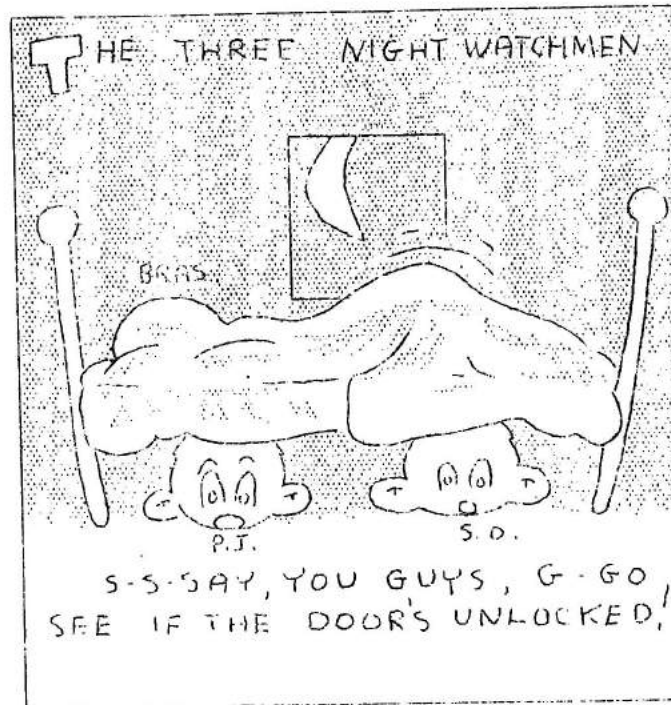 THE THREE NIGHT WATCHMEN
BRAS.
P.J.
S.D.
S-S-SAY, YOU GUYS, G-GO
SEE IF THE DOOR'S UNLOCKED!